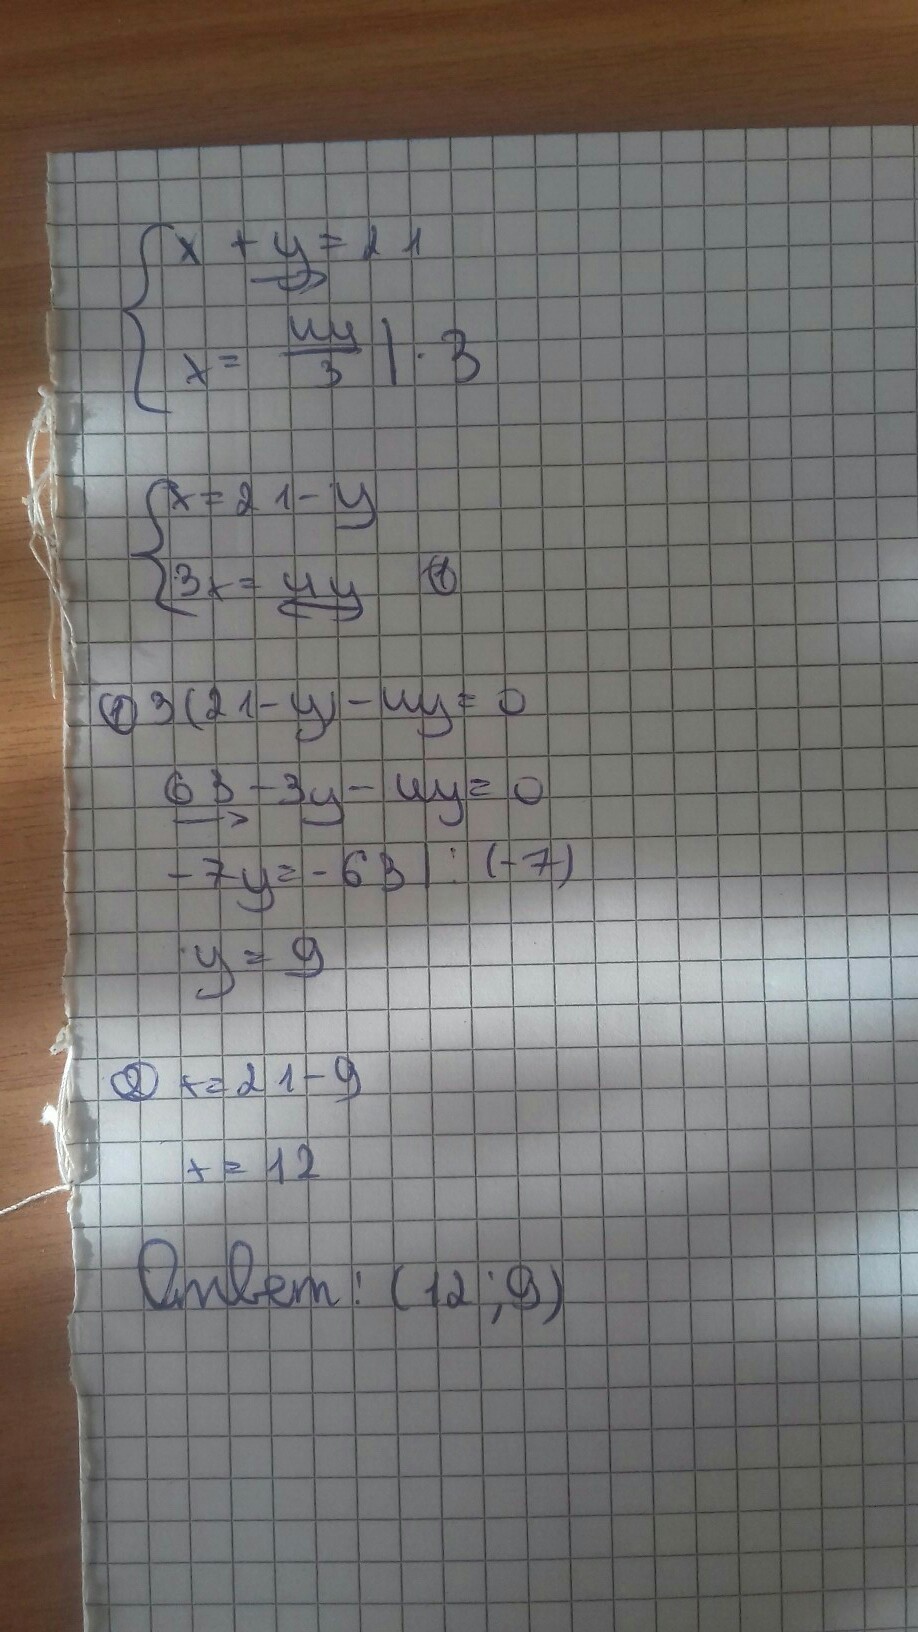 x + y = 21
x = 4y/3 | · 3
x = 21 - y
3x = 4y
① 3(21 - y) - 4y = 0
63 - 3y - 4y = 0
-7y = -63 | : (-7)
y = 9
② x = 21 - 9
x = 12
Ответ: (12; 9)